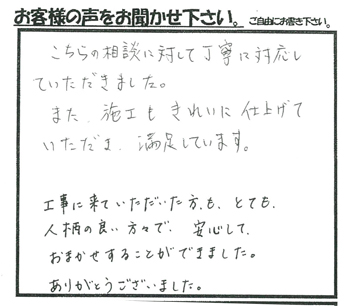 お客様の声をお聞かせ下さい。ご自由にお書き下さい。
こちらの相談に対して丁寧に対応し
ていただきました。
また、施工もきれいに仕上げて
いただき、満足しています。
工事に来ていただいた方も、とても、
人柄の良い方々で、安心して、
おまかせすることができました。
ありがとうございました。